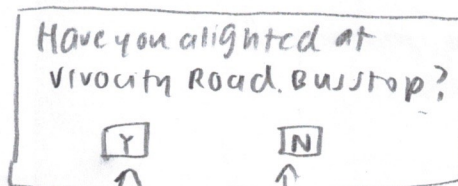 Have you alighted at
Vivocity Road. Busstop?
Y N